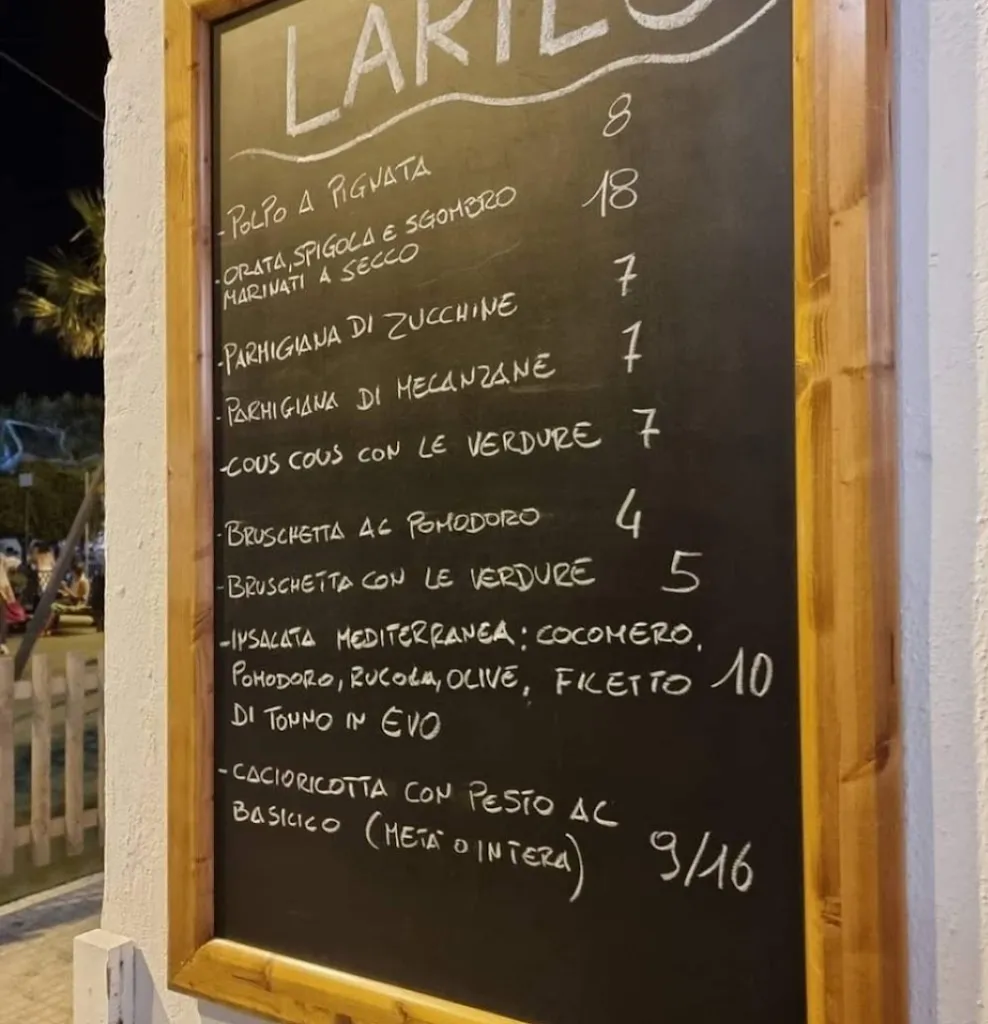 - POLPO A PIGNATA 8
- ORATA, SPIGOLA E SGOMBRO 18
MARINATI A SECCO
- PARMIGIANA DI ZUCCHINE 7
- PARMIGIANA DI MELANZANE 7
- COUS COUS CON LE VERDURE 7
- BRUSCHETTA AL POMODORO 4
- BRUSCHETTA CON LE VERDURE 5
- INSALATA MEDITERRANEA: COCOMERO,
POMODORO, RUCOLA, OLIVE, FILETTO 10
DI TONNO IN EVO
- CACIORICOTTA CON PESTO AL
BASILICO (METÀ O INTERA) 9/16